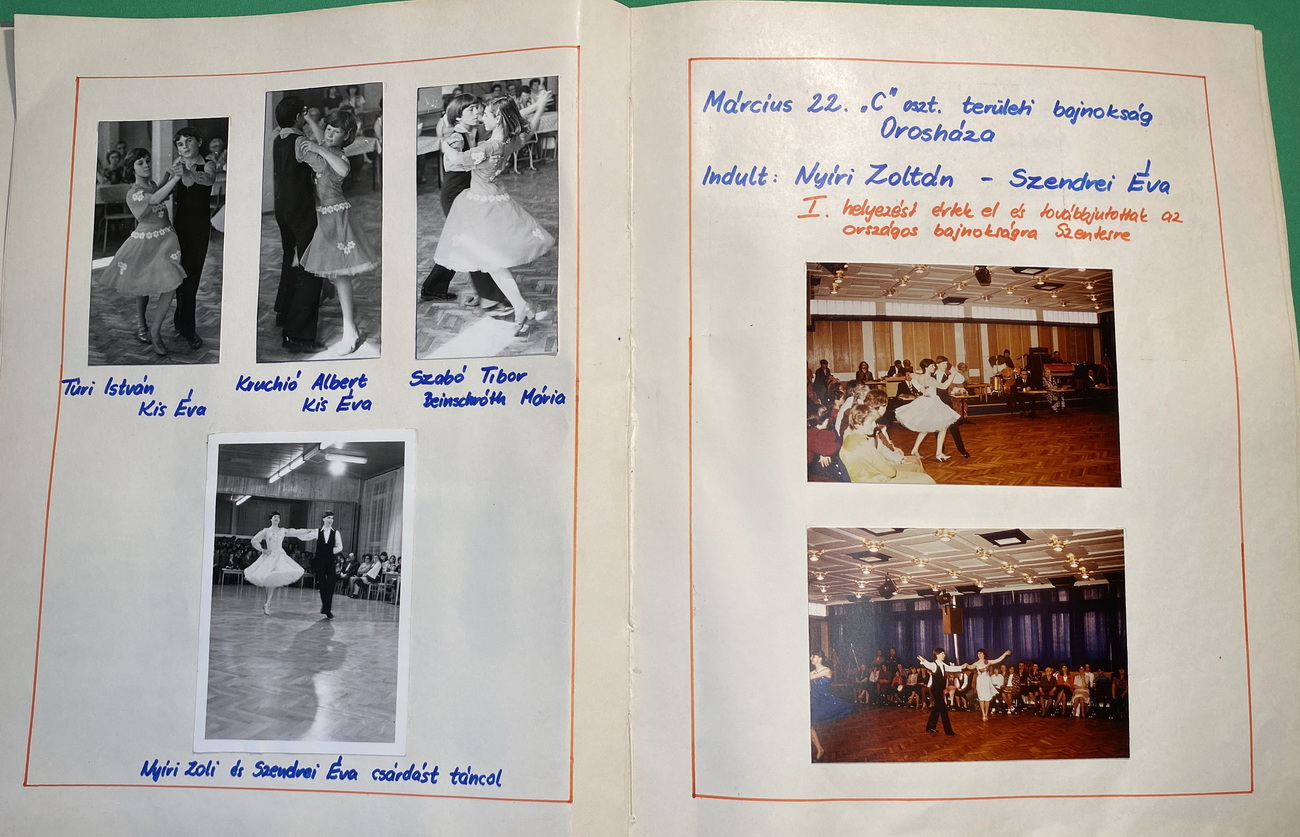 Túri István
Kis Éva
Kruchió Albert
Kis Éva
Szabó Tibor
Beinschróth Mária
Nyíri Zoli és Szendrei Éva csárdást táncol
Március 22. „C" oszt. területi bajnokság
Orosháza
Indult: Nyíri Zoltán - Szendrei Éva
I. helyezést értek el és továbbjutottak az
országos bajnokságra Szentesre